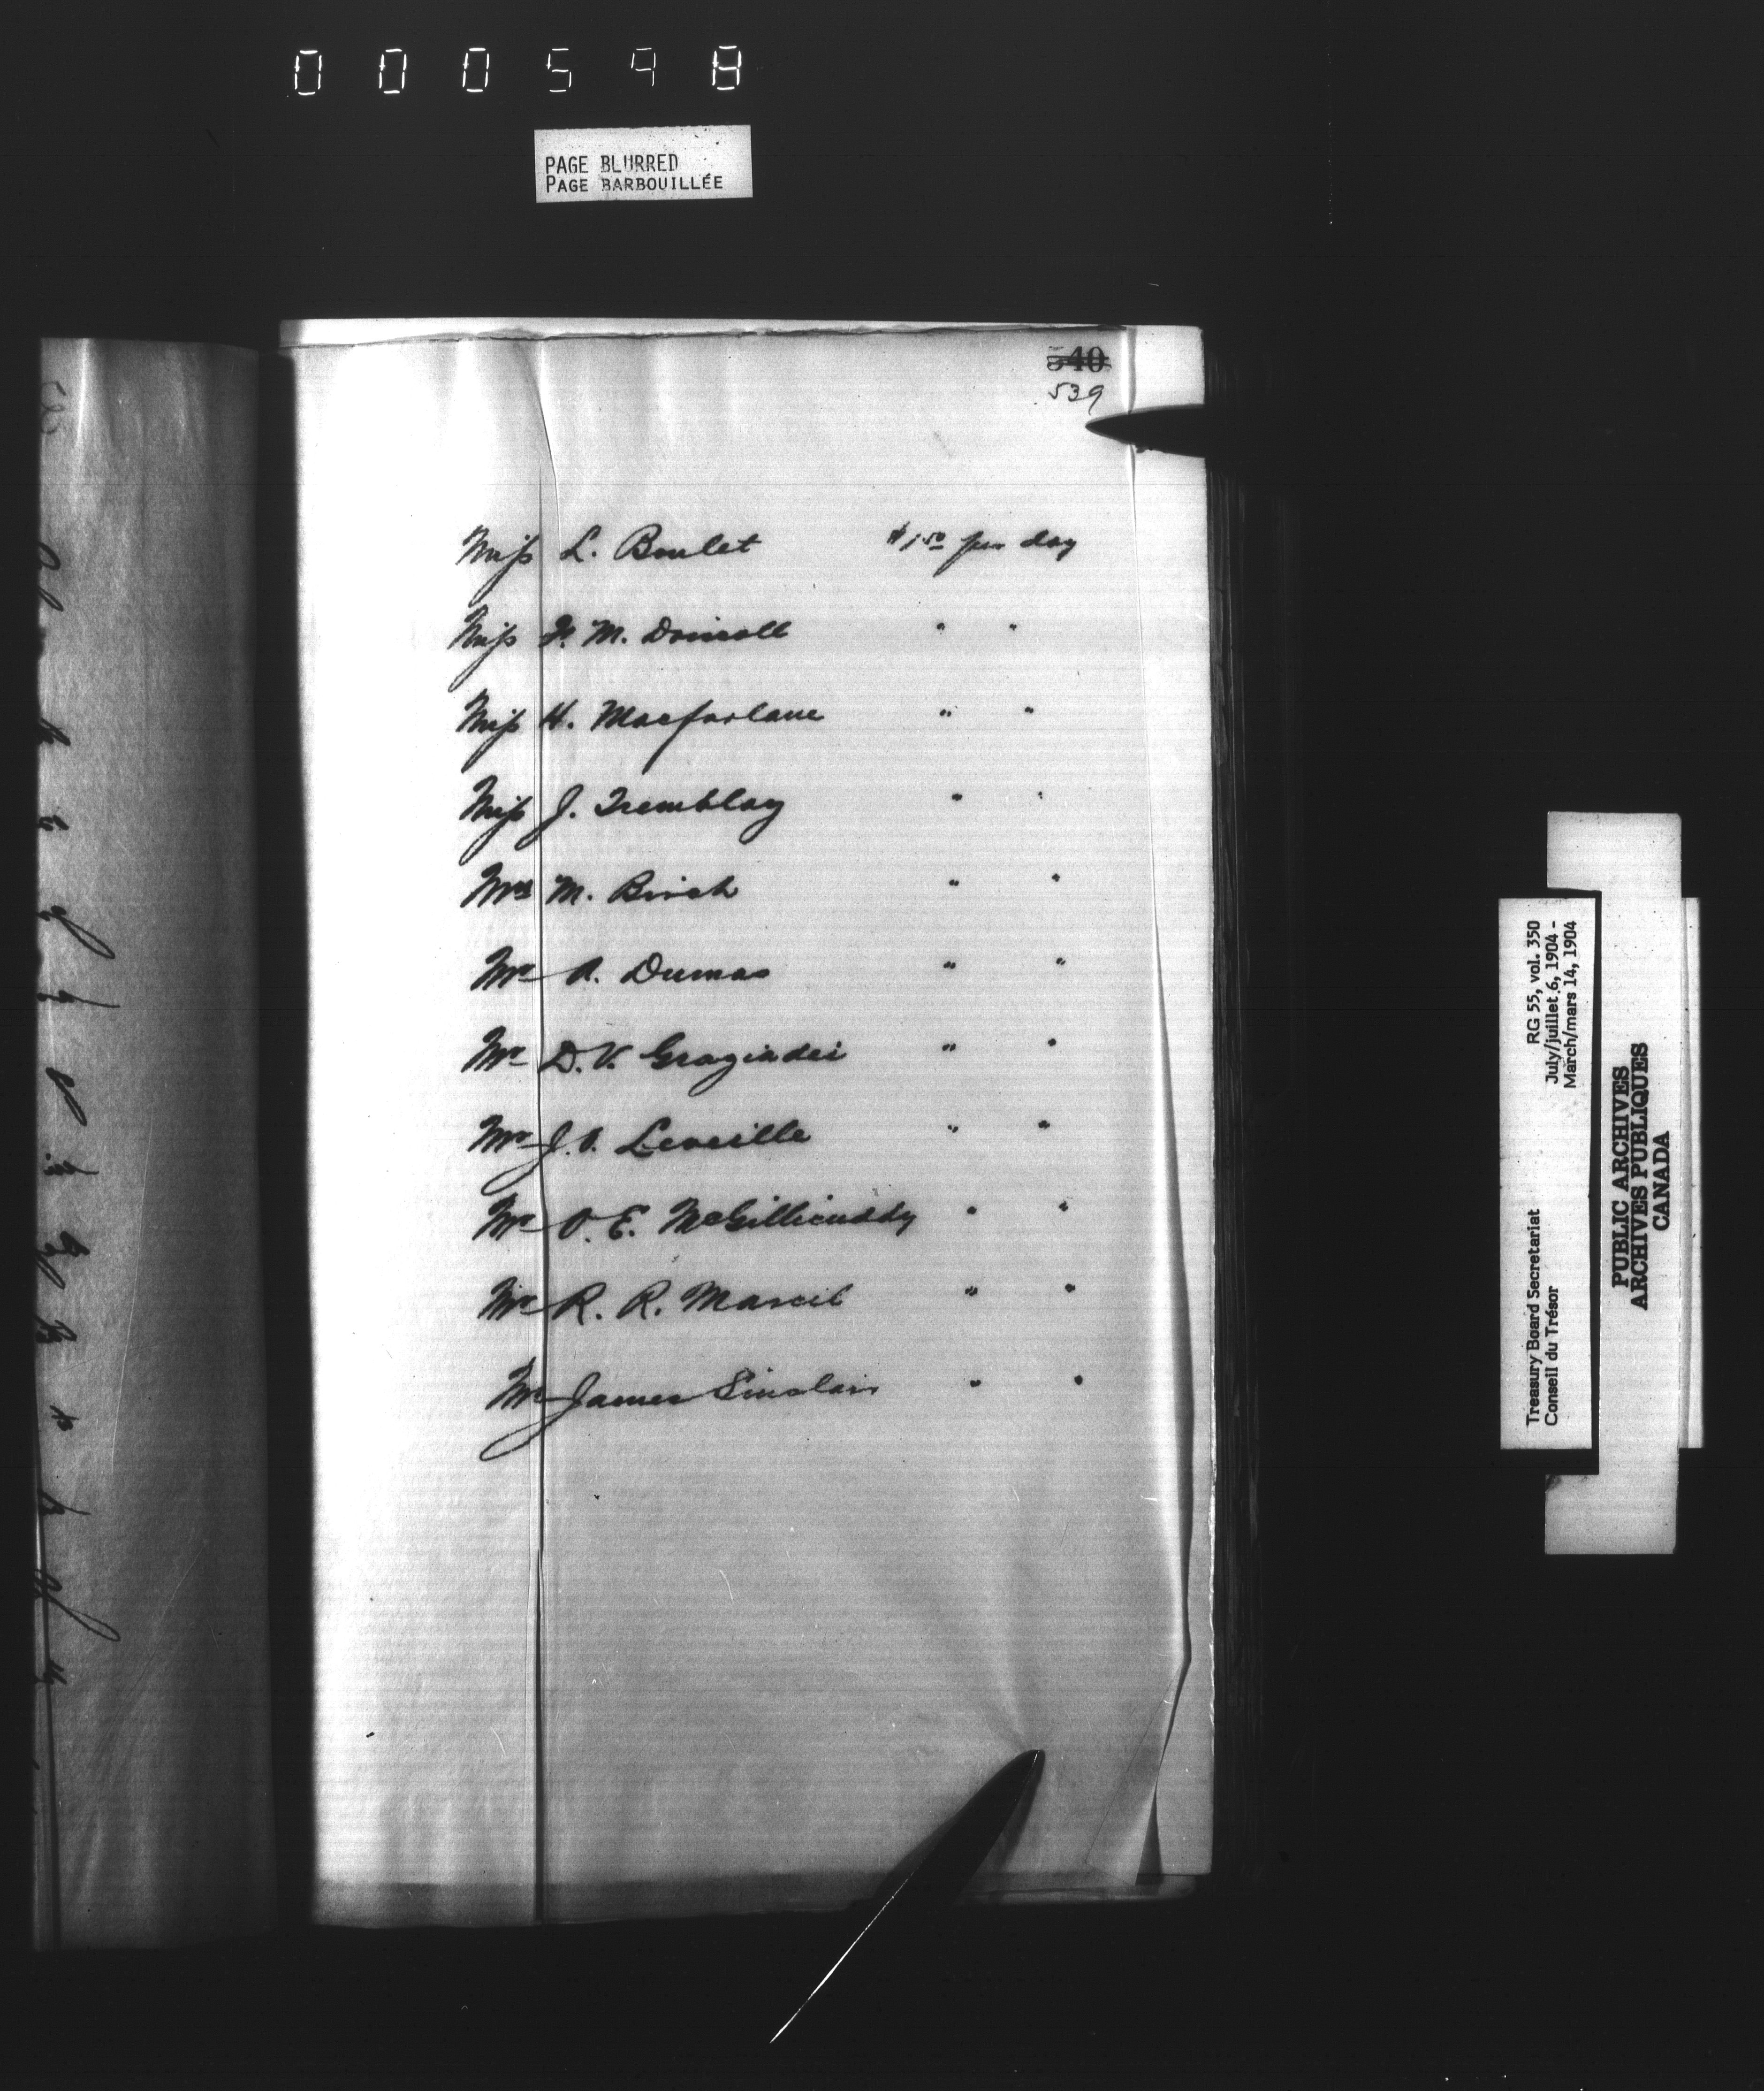 000598
PAGE BLURRED
PAGE BARBOUILLÉE
540
539
Miss L. Boulet $1.50 per day
Miss F. M. Driscoll " "
Miss H. Macfarlane " "
Miss J. Tremblay " "
Mrs M. Birch " "
Mr A. Dumas " "
Mr D. V. Graziadei " "
Mr J. O. Leveille " "
Mr O. E. McGillicuddy " "
Mr R. R. Marcil " "
Mr James Sinclair " "
Treasury Board Secretariat RG 55, vol. 350
Conseil du Trésor July/juillet 6, 1904 -
March/mars 14, 1904
PUBLIC ARCHIVES
ARCHIVES PUBLIQUES
CANADA